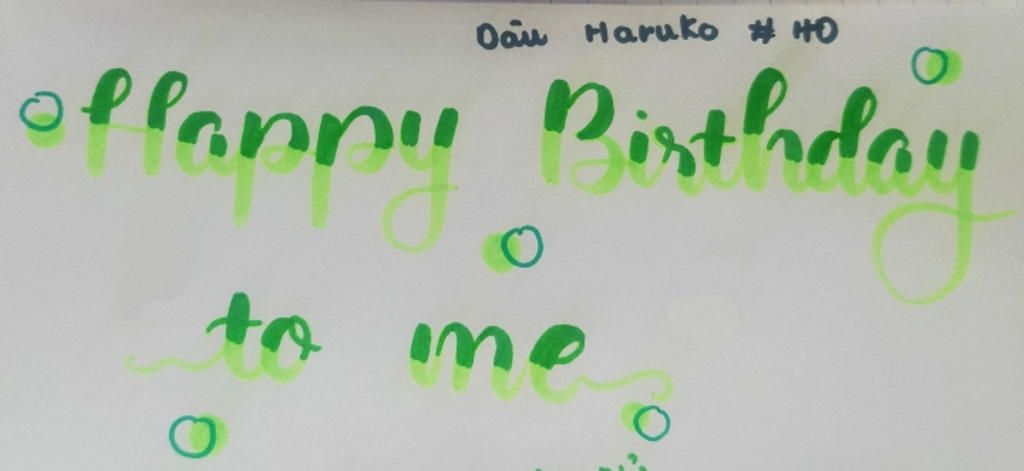 Dâu Haruko # HO
Happy Birthday
to me